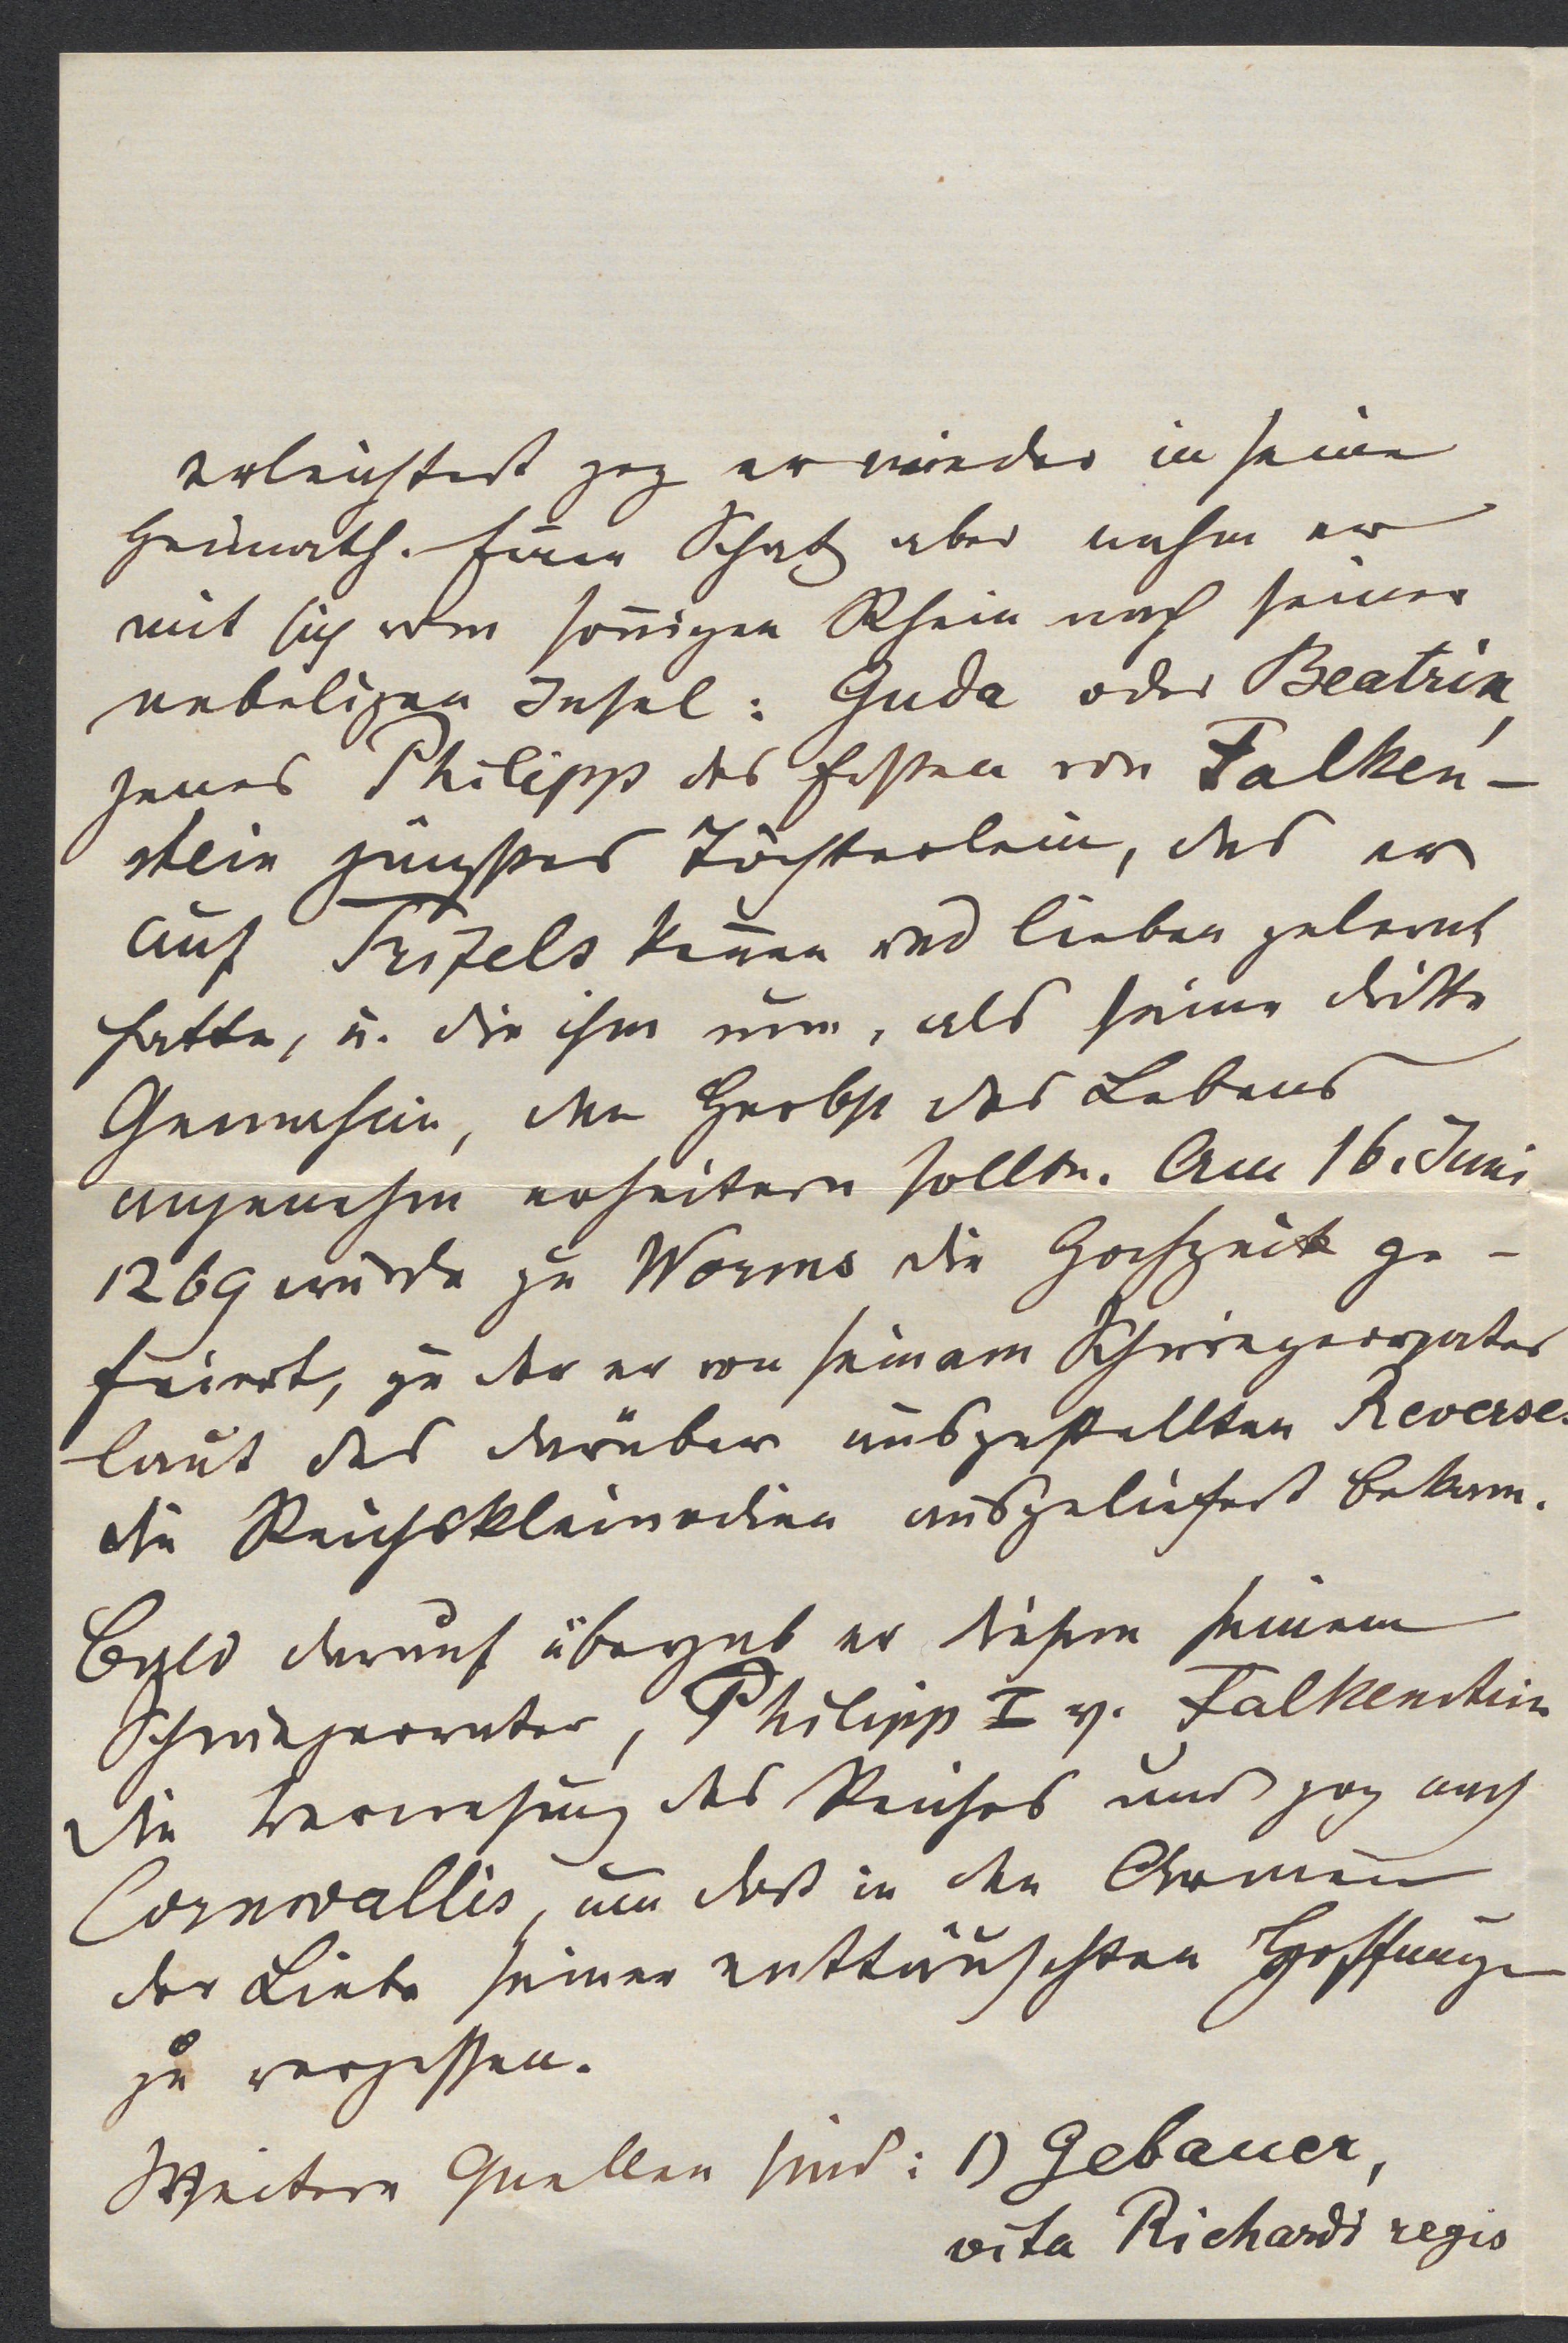 erleichtert zog er wieder in seine
Heimath. Einen Schatz aber nahm er
mit sich vom soñigen Rhein nach seiner
nebeligen Insel: Guda oder Beatrix,
jenes Philipp des Ersten von Falken-
stein jüngstes Töchterlein, das er
auf Trifels keñen und lieben gelernt
hatte, u. die ihm nun, als seine dritte
Gemahlin, den Herbst des Lebens
angenehm erheitern sollte. Am 16. Juni
1269 wurde zu Worms die Hochzeit ge-
feiert, zu der er von seinem Schwiegervater
laut des darüber ausgestellten Reverses
die Reichskleinodien ausgeliefert bekam.
Bald darauf übergab er diesem seinem
Schwiegervater, Philipp I v. Falkenstein
die Verwesung des Reiches und zog nach
Cornwallis, um dort in den Armen
der Liebe seiner enttäuschten Hoffnungen
zu vergessen.
Weitere Quellen sind: 1) Gebauer,
vita Richardi regis